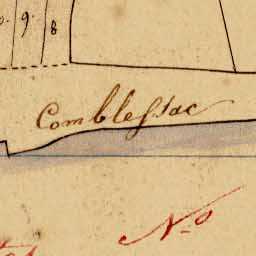 9 8
Comblessac
No